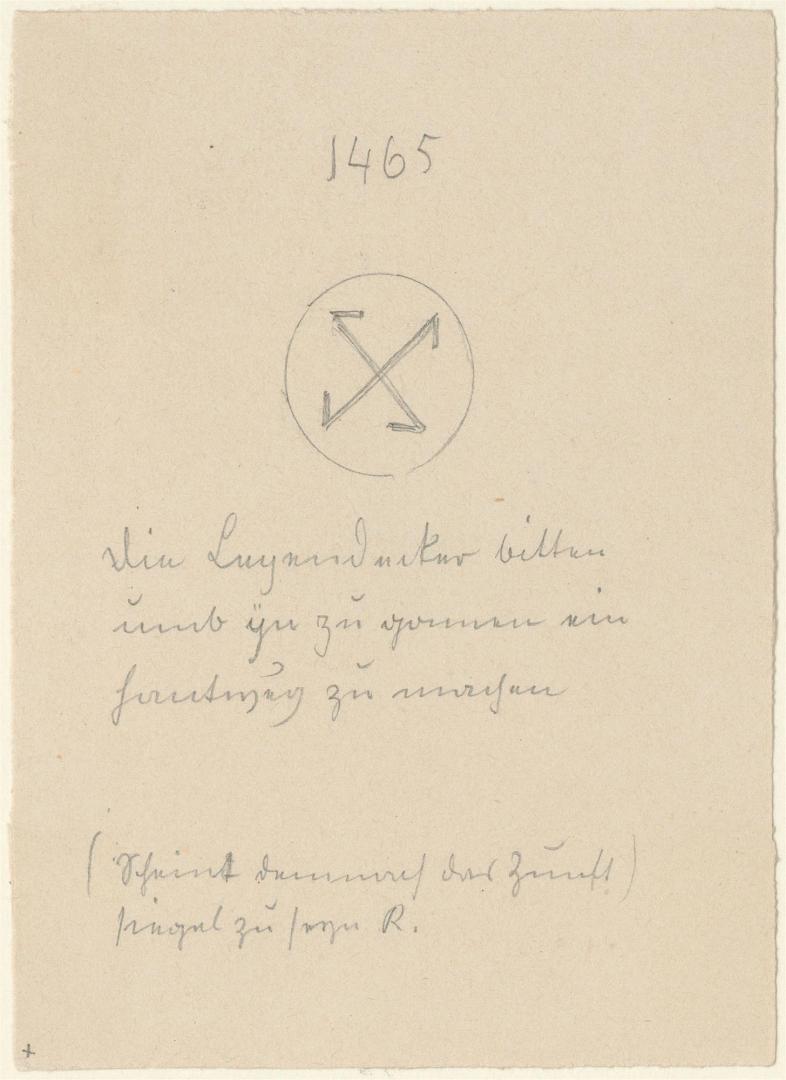 1465
Die Leyendecker bitten
umb ÿn zu gonnen ein
hantweg zu machen
(Scheint demnach das Zunft)
siegel zu seyn R.